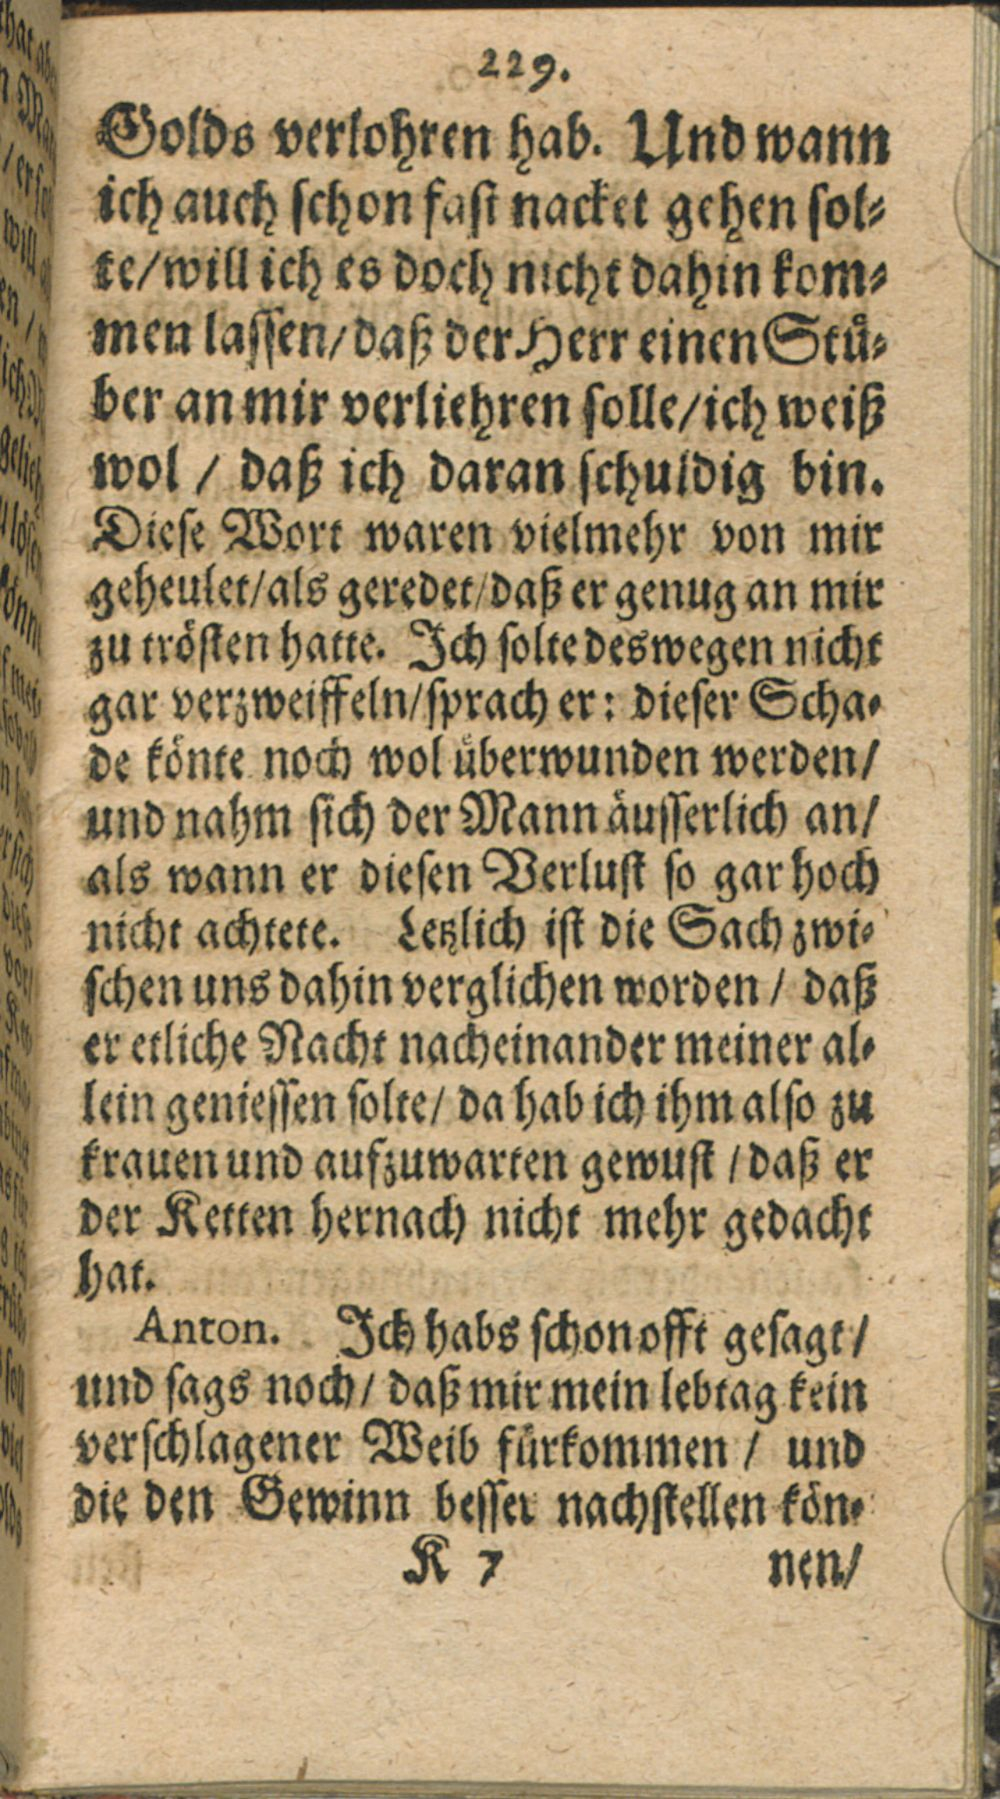 229.
Golds verlohren hab. Und wann
ich auch schon fast nacket gehen sol-
te/will ich es doch nicht dahin kom-
men lassen/daß der Herr einen Stü-
ber an mir verliehren solle/ich weiß
wol / daß ich daran schuldig bin.
Diese Wort waren vielmehr von mir
geheulet/als geredet/daß er genug an mir
zu trösten hatte. Ich solte deswegen nicht
gar verzweiffeln/sprach er: dieser Scha-
de könte noch wol überwunden werden/
und nahm sich der Mann äusserlich an/
als wann er diesen Verlust so gar hoch
nicht achtete. Letzlich ist die Sach zwi-
schen uns dahin verglichen worden / daß
er etliche Nacht nacheinander meiner al-
lein geniessen solte/ da hab ich ihm also zu
krauen und aufzuwarten gewust / daß er
der Ketten hernach nicht mehr gedacht
hat.
Anton. Ich habs schon offt gesagt/
und sags noch/ daß mir mein lebtag kein
verschlagener Weib fürkommen / und
die den Gewinn besser nachstellen kön-
K 7 nen/